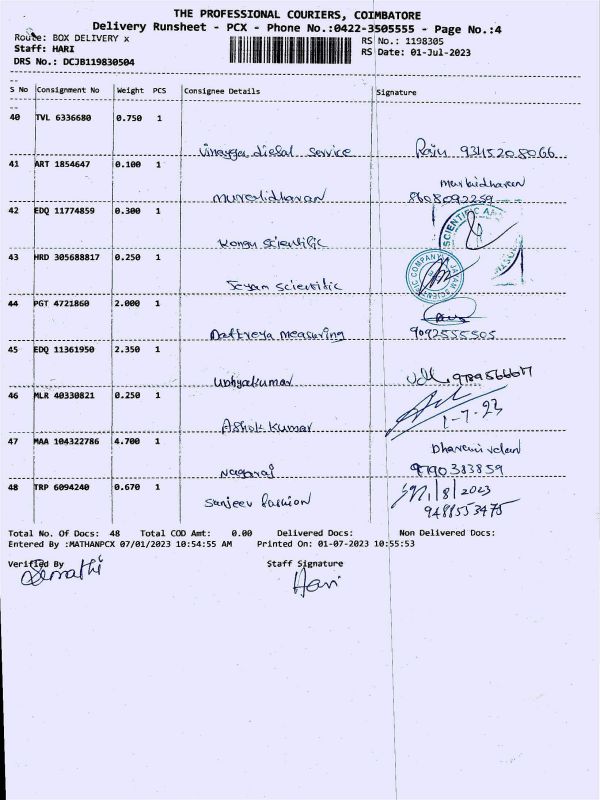 THE PROFESSIONAL COURIERS, COIMBATORE
Delivery Runsheet - PCX - Phone No.:0422-3505555 - Page No.:4
Route: BOX DELIVERY x
RS No.: 1198305
Staff: HARI
RS Date: 01-Jul-2023
DRS No.: DCJB119830504
S No Consignment No Weight PCS Consignee Details Signature
40 TVL 6336680 0.750 1
diesal service Raju 9345208066
41 ART 1854647 0.100 1
muralidharan
muralidharan 8608092259
42 EDQ 11774859 0.300 1
Kongu scientific
43 HRD 305688817 0.250 1
Jeyam scientific
44 PGT 4721860 2.000 1
Dattreya measuring 9092555505
45 EDQ 11361950 2.350 1
udhyakumar
46 MLR 40330821 0.250 1
Ashok Kumar 1-7-23
47 MAA 104322786 4.700 1
nagaraj 9790383859
48 TRP 6094240 0.670 1
Sanjeev fashion 1/8/2023
9488553475
Total No. Of Docs: 48 Total COD Amt: 0.00 Delivered Docs: Non Delivered Docs:
Entered By :MATHANPCX 07/01/2023 10:54:55 AM Printed On: 01-07-2023 10:55:53
Verified By Staff Signature
Hari